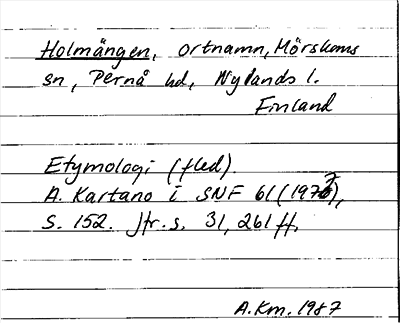 Holmängen, ortnamn, Mörskoms
sn, Pernå hd, Nylands l.
Finland
Etymologi (fled).
A. Kartano i SNF 61 (1973),
s. 152. Jfr. s. 31, 261 ff.
A.Km. 1987